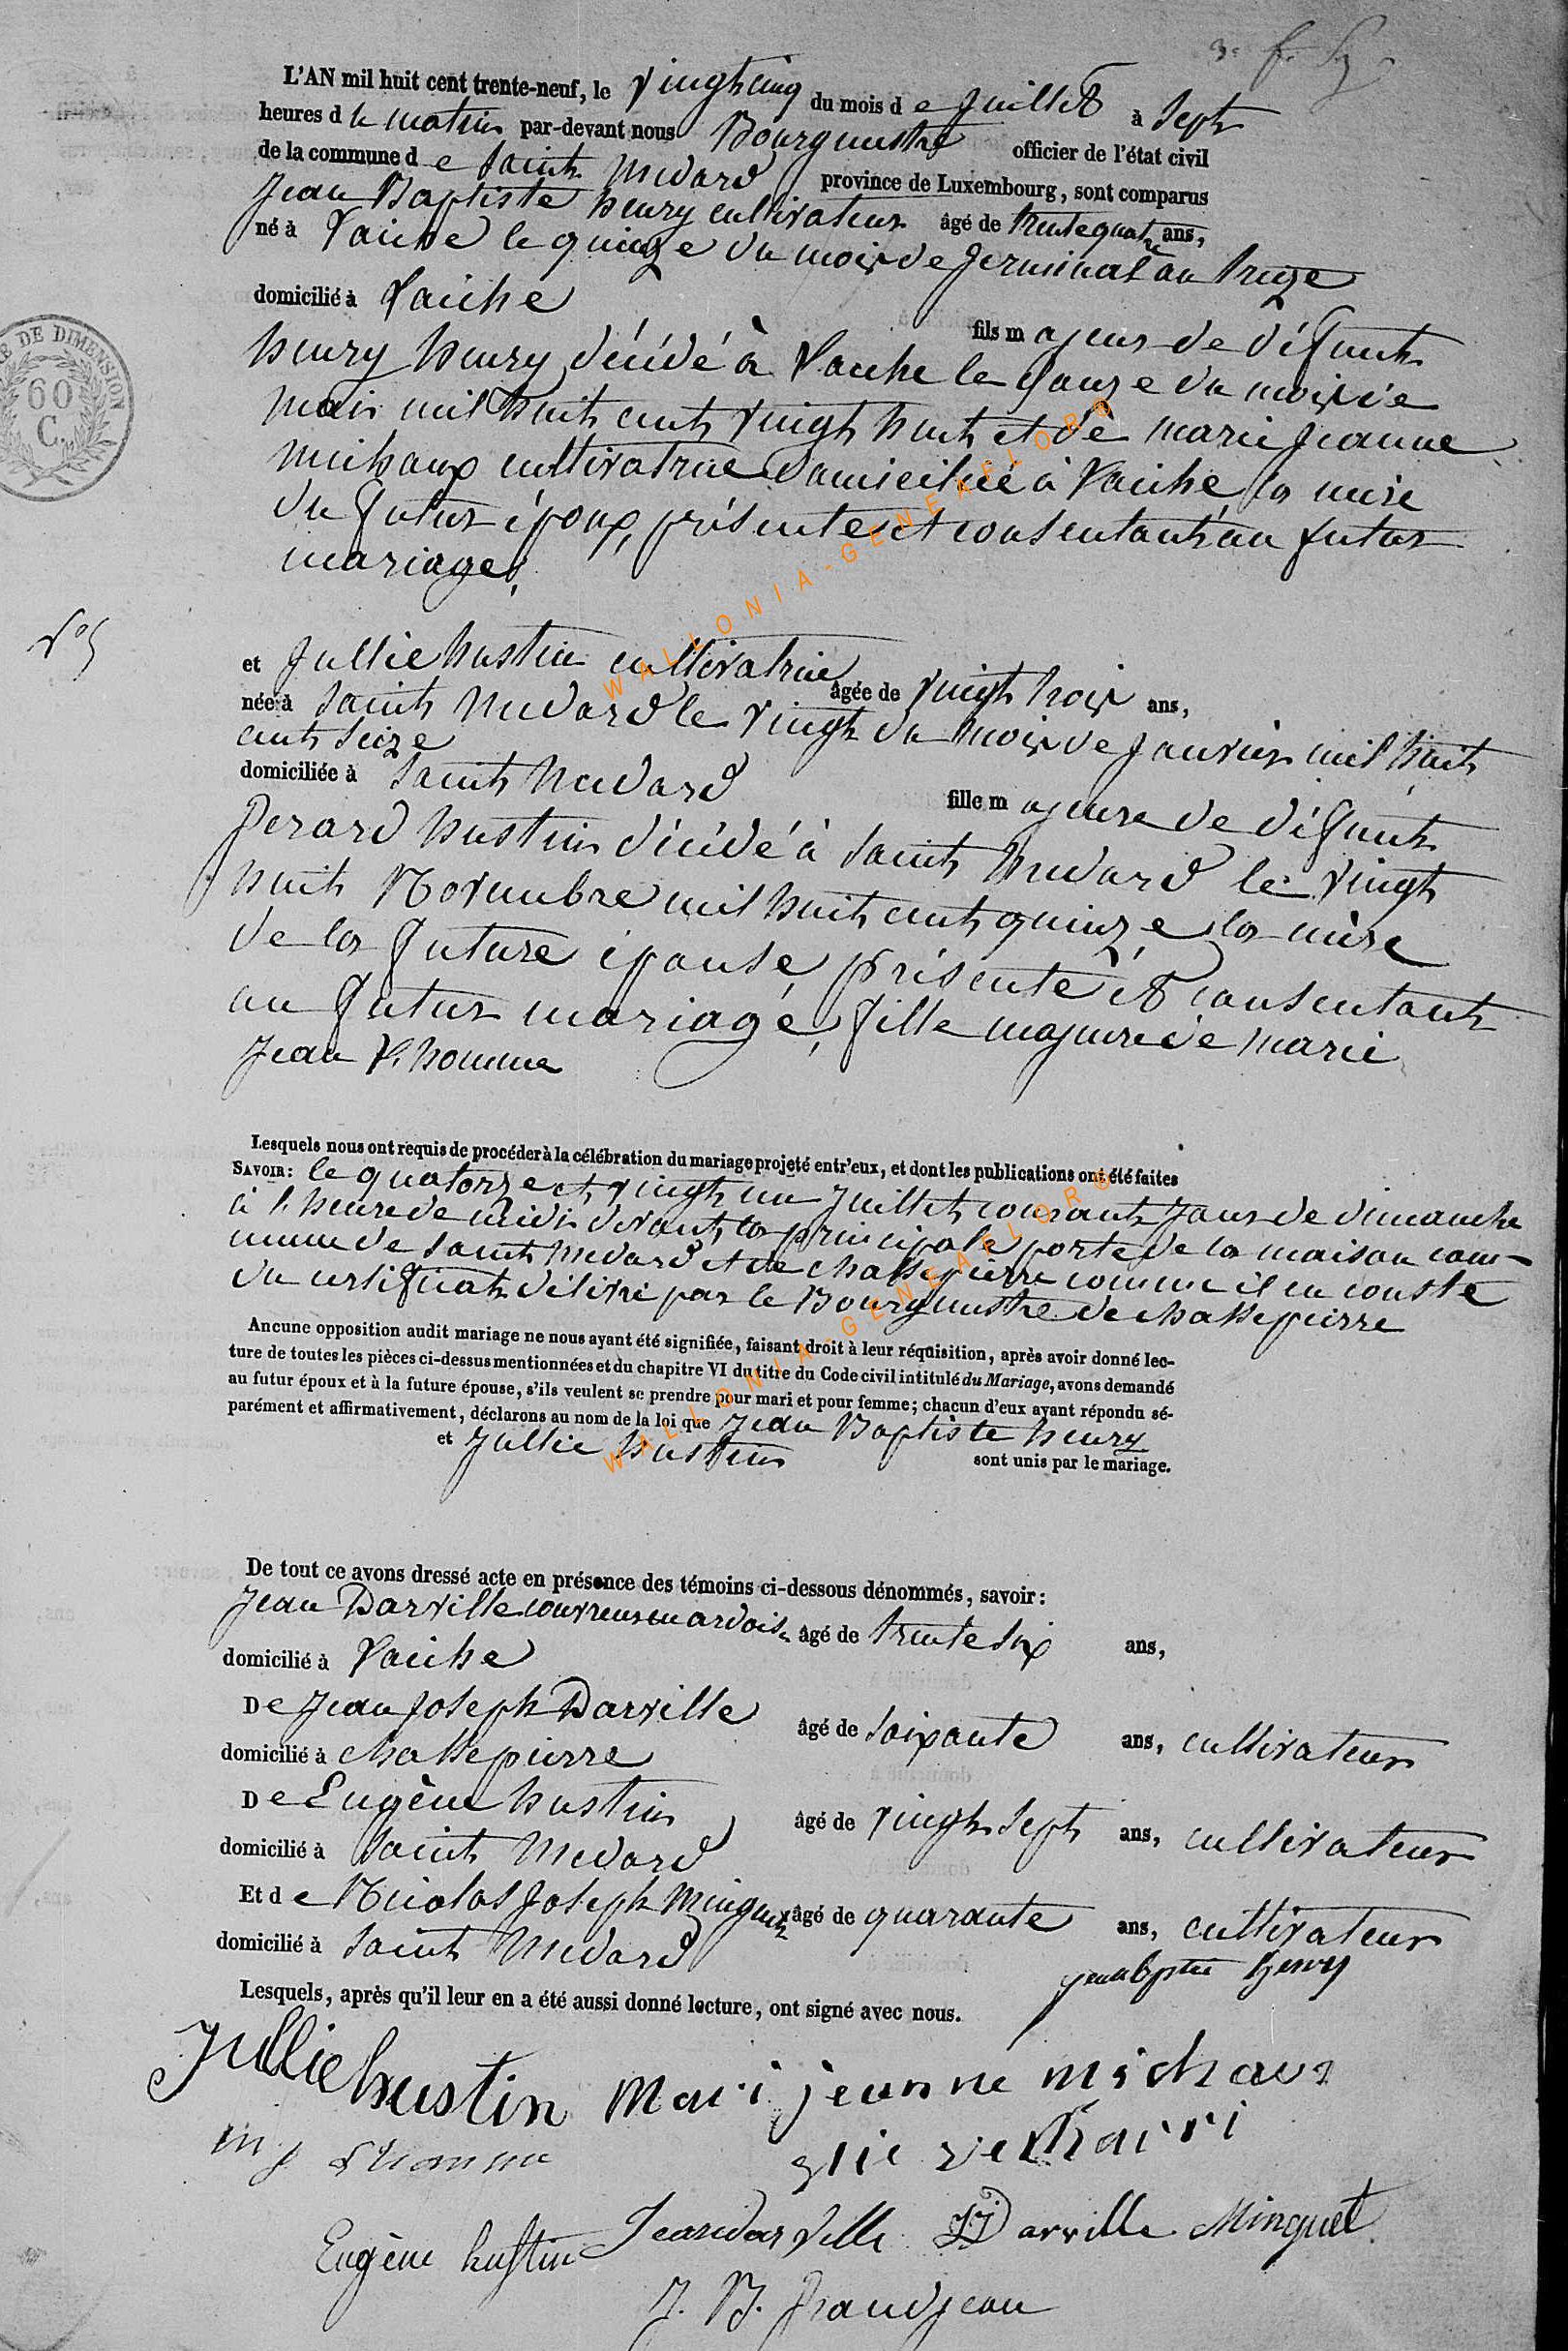 L'AN mil huit cent trente-neuf, le vingt cinq du mois de juillet à sept
heures du matin par-devant nous Bourgmestre officier de l'état civil
de la commune de Saint Medard province de Luxembourg, sont comparus
Jean Baptiste henry cultivateur âgé de trente quatre ans,
né à Laiche le quinze du mois de Germinal an treize
domicilié à Laiche
fils majeur de défunt
henry henry décédé à Laiche le douze du mois de
mars mil huit cent vingt huit et de marie jeanne
michaux cultivatrice domiciliée à Laiche, la mère
du futur époux, présente et consentant au futur
mariage,
N° 5
et Jullie hustin cultivatrice âgée de vingt trois ans,
née à Saint Medard le vingt du mois de janvier mil huit
cent seize
domiciliée à Saint Medard
fille majeure de défunt
Gerard hustin décédé à Saint Medard le vingt
huit Novembre mil huit cent quinze, la mère
de la future épouse, présente et consentant
au futur mariage, fille majeure de marie
Jean L'homme
Lesquels nous ont requis de procéder à la célébration du mariage projeté entr'eux, et dont les publications ont été faites
SAVOIR: le quatorze et vingt un juillet courant jour de dimanche
à l'heure de midi devant la principale porte de la maison com-
mune de Saint Medard et de chassepierre comme il en conste
du certificat délivré par le Bourgmestre de chassepierre
Aucune opposition audit mariage ne nous ayant été signifiée, faisant droit à leur réquisition, après avoir donné lec-
ture de toutes les pièces ci-dessus mentionnées et du chapitre VI du titre du Code civil intitulé du Mariage, avons demandé
au futur époux et à la future épouse, s'ils veulent se prendre pour mari et pour femme; chacun d'eux ayant répondu sé-
parément et affirmativement, déclarons au nom de la loi que Jean Baptiste henry
et Jullie hustin sont unis par le mariage.
De tout ce avons dressé acte en présence des témoins ci-dessous dénommés, savoir:
Jean Darville couvreur en ardoise âgé de trente six ans,
domicilié à Laiche
De Jean joseph Darville âgé de soixante ans, cultivateur
domicilié à chassepierre
De Eugène hustin âgé de vingt sept ans, cultivateur
domicilié à Saint Medard
Et de Nicolas joseph Minguet âgé de quarante ans, cultivateur
domicilié à Saint Medard
Lesquels, après qu'il leur en a été aussi donné lecture, ont signé avec nous.
Jullie hustin Mari jeanne michaux
Eugène hustin Jean darville JJ Darville Minguet
J. B. Grandjean
E DE DIMENSION
60
C.
WALLONIA-GENEAFLOR®
WALLONIA-GENEAFLOR®